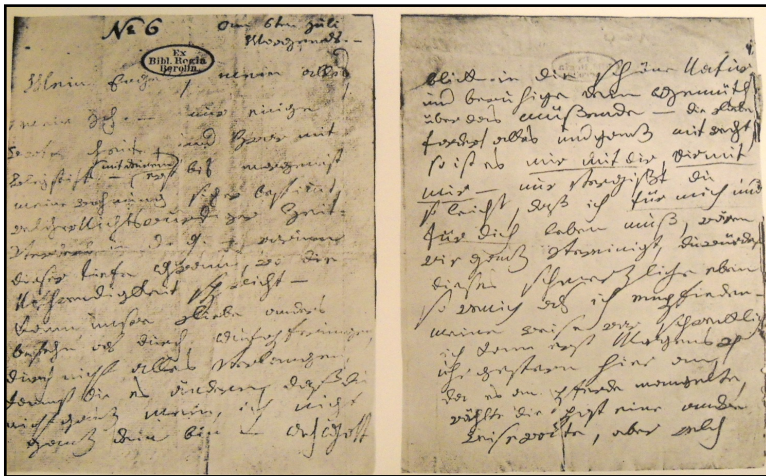 No 6 am 6ten Juli
Morgends. –
Ex
Bibl. Regia
Berolin.
Mein Engel, mein alles
mein Ich. – nur einige
Worte heute, und zwar mit
Bleystift (mit deinem) –
erst bis morgen ist
meine Wohnung sicher bestimmt,
welcher Nichtswürdiger Zeit-
verderb in d. g. – warum
dieser tiefe Gram, wo die
Nothwendigkeit spricht –
Kann unsre Liebe anders
bestehn als durch Aufopferungen,
durch nicht alles verlangen,
kannst du es ändern, daß du
nicht ganz mein, ich nicht
ganz dein bin – Ach Gott
blick in die schöne Natur
und beruhige dein Gemüth
über das müßende – die Liebe
fordert alles und ganz mit recht,
so ist es mir mit dir, dir mit
mir – nur vergißt du
so leicht, daß ich für mich und
für dich leben muß, wären
wir ganz vereinigt, du würdest
dieses schmerzliche eben
so wenig als ich empfinden –
meine Reise war schrecklich
ich kam erst Morgens 4
uhr gestern hier an,
da es an Pferde mangelte,
wählte die Post eine andre
Reiseroute, aber welch